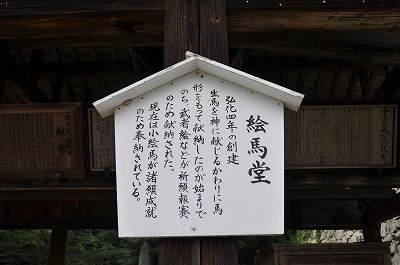 絵馬堂
弘化四年の創建
生馬を神に献じるかわりに馬
形をもって献納したのが始まりで
のち、武者絵などが祈願報賽
のため献納された。
現在は小絵馬が諸願成就
のため奉納されている。